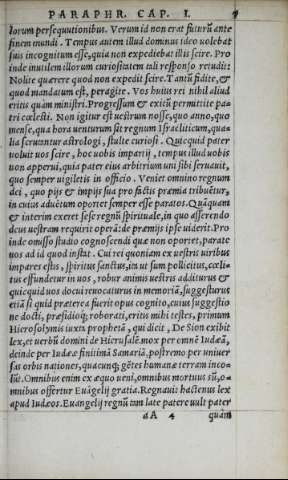 PARAPHR. CAP. I.
lorum persequutionibus. Verum id non erat futurũ ante
finem mundi. Tempus autem illud dominus ideo volebat
suis incognitum esse, quia non expediebat illis scire. Pro
inde inutilem illorum curiositatem tali responso retudit:
Nolite quærere quod non expedit scire. Tantũ fidite, &
quod mandatum est, peragite. Vos huius rei nihil aliud
eritis quàm ministri. Progressum & exitũ permittite pa-
tri cœlesti. Non igitur est vestrum nosse, quo anno, quo
mense, qua hora venturum sit regnum Israëliticum, qua-
lia scrutantur astrologi, stulte curiosi. Quicquid pater
voluit vos scire, hoc vobis impartij, tempus illud vobis
non apperui, quia pater eius arbitrium uni sibi seruauit,
quo semper vigiletis in officio. Veniet omnino regnum
dei, quo pijs & impijs sua pro factis præmia tribuẽtur,
in cuius aduẽtum oportet semper esse paratos. Quãquam
& interim exeret sese regnũ spirituale, in quo asserendo
deus vestram requirit operã: de præmijs ipse viderit. Pro
inde omisso studio cognoscendi quæ non oportet, parate
vos ad id quod instat. Cui rei quoniam ex vestris viribus
impares estis, spiritus sanctus, im ut sum pollicitus, cœli-
tus effundetur in vos, robur animis vestris additurus &
quicquid vos docui reuocaturus in memoriã, suggesturus
etiã si quid præterea fuerit opus cognito, cuius suggestio
ne docti, præsidioq; roborati, eritis mihi testes, primum
Hierosolymis iuxta prophetã, qui dicit, De Sion exibit
lex, et verbũ domini de Hierusalẽ. mox per omnẽ Iudæã,
deinde per Iudææ finitimã Samariã, postremo per vniuer
sas orbis nationes, quacunq; gẽtes humanæ terram inco-
lũt. Omnibus enim ex æquo veni, omnibus mortuus sũ, o-
mnibus offertur Euãgelij gratia. Regnauit hactenus lex
apud Iudæos. Euangelij regnũ tam late patere vult pater
aA 4 quàm